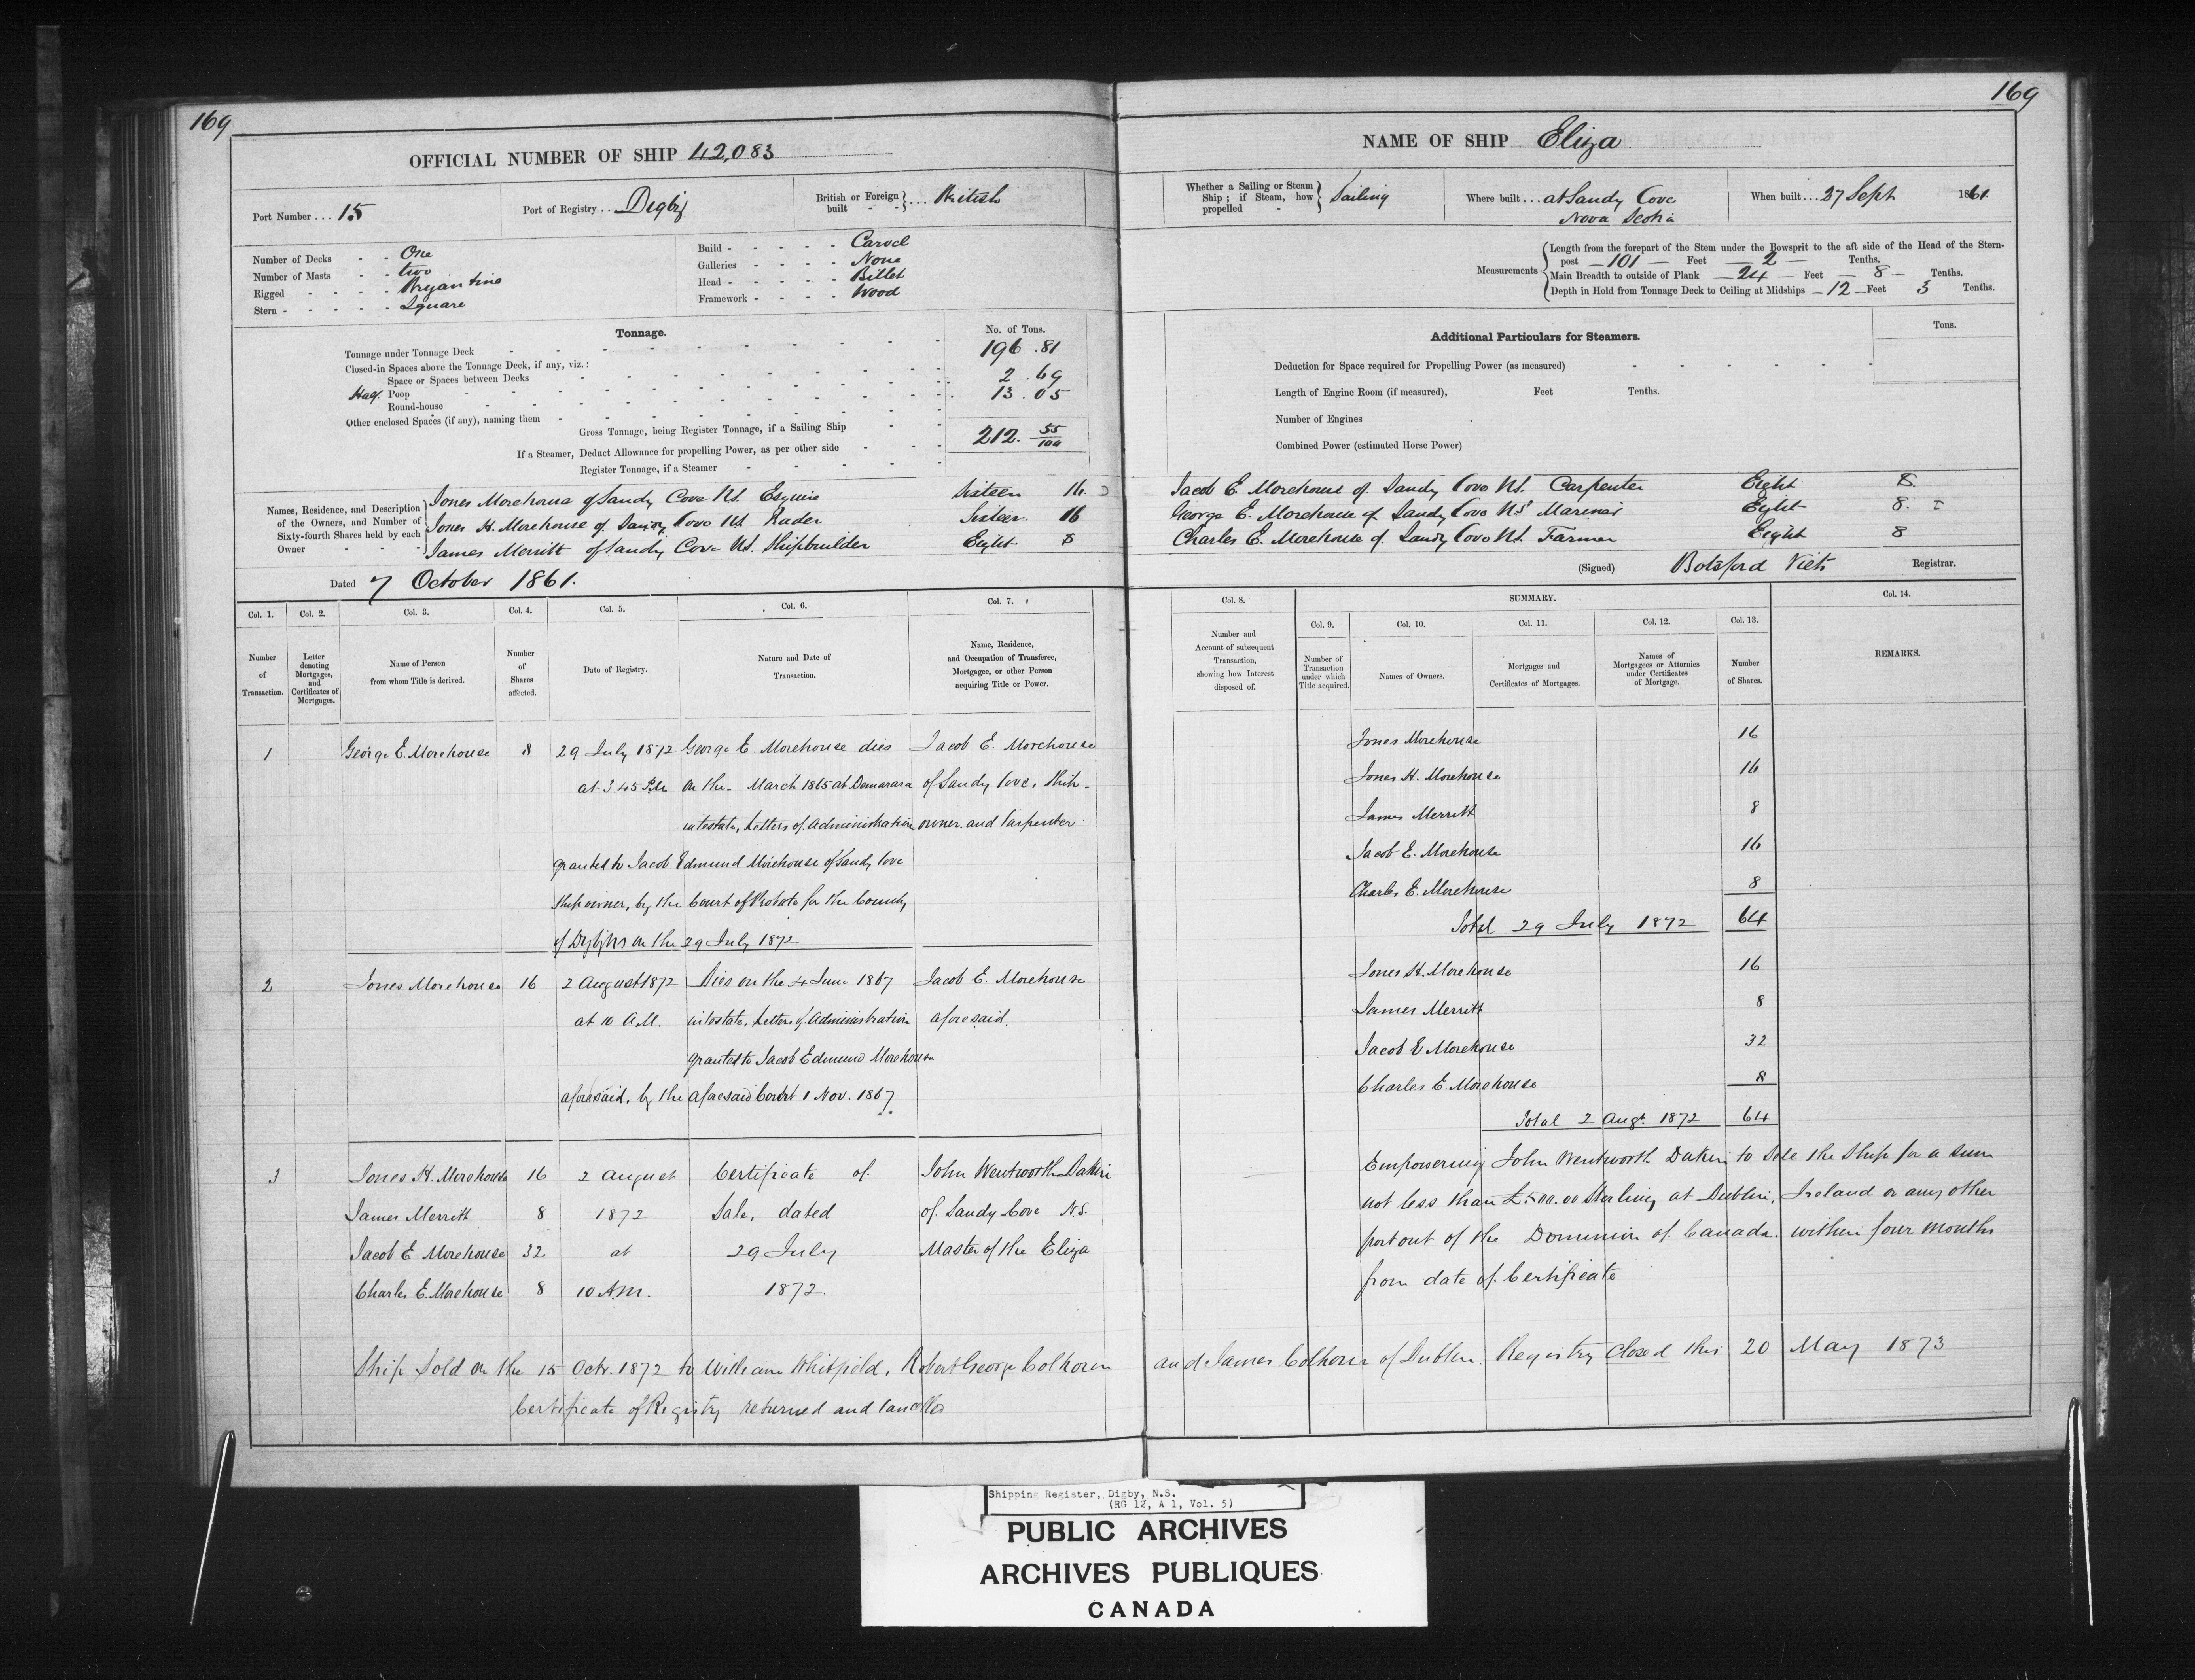 169
OFFICIAL NUMBER OF SHIP 42,083
Port Number ... 15
Port of Registry .. Digby
British or Foreign built - - } ... British
Number of Decks - - One
Number of Masts - - two
Rigged - - - - Bryantine
Stern - - - - - Square
Build - - - - - Carvel
Galleries - - - - None
Head - - - - - Billet
Framework - - - - Wood
Tonnage.
No. of Tons.
Tonnage under Tonnage Deck 196 .81
Closed-in Spaces above the Tonnage Deck, if any, viz.:
Space or Spaces between Decks 2 .69
Half Poop 13 .05
Round-house
Other enclosed Spaces (if any), naming them
Gross Tonnage, being Register Tonnage, if a Sailing Ship 212. 55/100
If a Steamer, Deduct Allowance for propelling Power, as per other side
Register Tonnage, if a Steamer
Names, Residence, and Description of the Owners, and Number of Sixty-fourth Shares held by each Owner
Jones Morehouse of Sandy Cove NS. Esquire Sixteen 16
Jones H. Morehouse of Sandy Cove NS Trader Sixteen 16
James Merritt of Sandy Cove NS. Shipbuilder Eight 8
Dated 7 October 1861.
169
NAME OF SHIP Eliza
Whether a Sailing or Steam Ship; if Steam, how propelled - } Sailing
Where built ... at Sandy Cove
Nova Scotia
When built ... 27 Sept 1861.
Measurements
Length from the forepart of the Stem under the Bowsprit to the aft side of the Head of the Stern-
post — 101 — Feet — 2 — Tenths.
Main Breadth to outside of Plank — 24 — Feet — 8 — Tenths.
Depth in Hold from Tonnage Deck to Ceiling at Midships — 12 — Feet 3 Tenths.
Additional Particulars for Steamers.
Tons.
Deduction for Space required for Propelling Power (as measured)
Length of Engine Room (if measured), Feet Tenths.
Number of Engines
Combined Power (estimated Horse Power)
Jacob E. Morehouse of Sandy Cove NS. Carpenter Eight 8.
George E. Morehouse of Sandy Cove NS Mariner Eight 8.
Charles E. Morehouse of Sandy Cove NS. Farmer Eight 8
(Signed) Botsford Viets Registrar.
Col. 1. Col. 2. Col. 3. Col. 4. Col. 5. Col. 6. Col. 7.
Number of Transaction.
Letter denoting Mortgages, and Certificates of Mortgages.
Name of Person from whom Title is derived.
Number of Shares affected.
Date of Registry.
Nature and Date of Transaction.
Name, Residence, and Occupation of Transferee, Mortgagee, or other Person acquiring Title or Power.
1 George E. Morehouse 8 29 July 1872 George E. Morehouse dies Jacob E. Morehouse
at 3.45 P.M on the - March 1865 at Demarara of Sandy Cove, Ship-
intestate, Letters of Administration owner and Carpenter
granted to Jacob Edmund Morehouse of Sandy Cove
Ship owner, by the Court of Probate for the County
of Digby NS on the 29 July 1872
2 Jones Morehouse 16 2 August 1872 Dies on the 4 June 1867 Jacob E. Morehouse
at 10 A.M. intestate, Letters of Administration aforesaid.
granted to Jacob Edmund Morehouse
aforesaid, by the aforesaid Court 1 Nov. 1867
3 Jones H. Morehouse 16 2 August Certificate of John Wentworth Dakin
James Merritt 8 1872 Sale, dated of Sandy Cove N.S.
Jacob E Morehouse 32 at 29 July Master of the Eliza
Charles E. Morehouse 8 10 A.M. 1872.
Col. 8. SUMMARY. Col. 14.
Col. 9. Col. 10. Col. 11. Col. 12. Col. 13.
Number and Account of subsequent Transaction, showing how Interest disposed of.
Number of Transaction under which Title acquired.
Names of Owners.
Mortgages and Certificates of Mortgages.
Names of Mortgagees or Attornies under Certificates of Mortgage.
Number of Shares.
REMARKS.
Jones Morehouse 16
Jones H. Morehouse 16
James Merritt 8
Jacob E. Morehouse 16
Charles E. Morehouse 8
Total 29 July 1872 64
Jones H. Morehouse 16
James Merritt 8
Jacob E Morehouse 32
Charles E. Morehouse 8
Total 2 Augt. 1872 64
Empowering John Wentworth Dakin to Sele the Ship for a sum
not less than £500.00 Sterling at Dublin, Ireland or any other
port out of the Dominion of Canada. within four months
from date of Certificate
Ship Sold on the 15 Octr. 1872 to William Whitfield, Robert George Colhoun and James Colhoun of Dublin. Registry Closed this 20 May 1873
Certificate of Registry returned and cancelled
Shipping Register, Digby, N.S.
(RG 12, A 1, Vol. 5)
PUBLIC ARCHIVES
ARCHIVES PUBLIQUES
CANADA